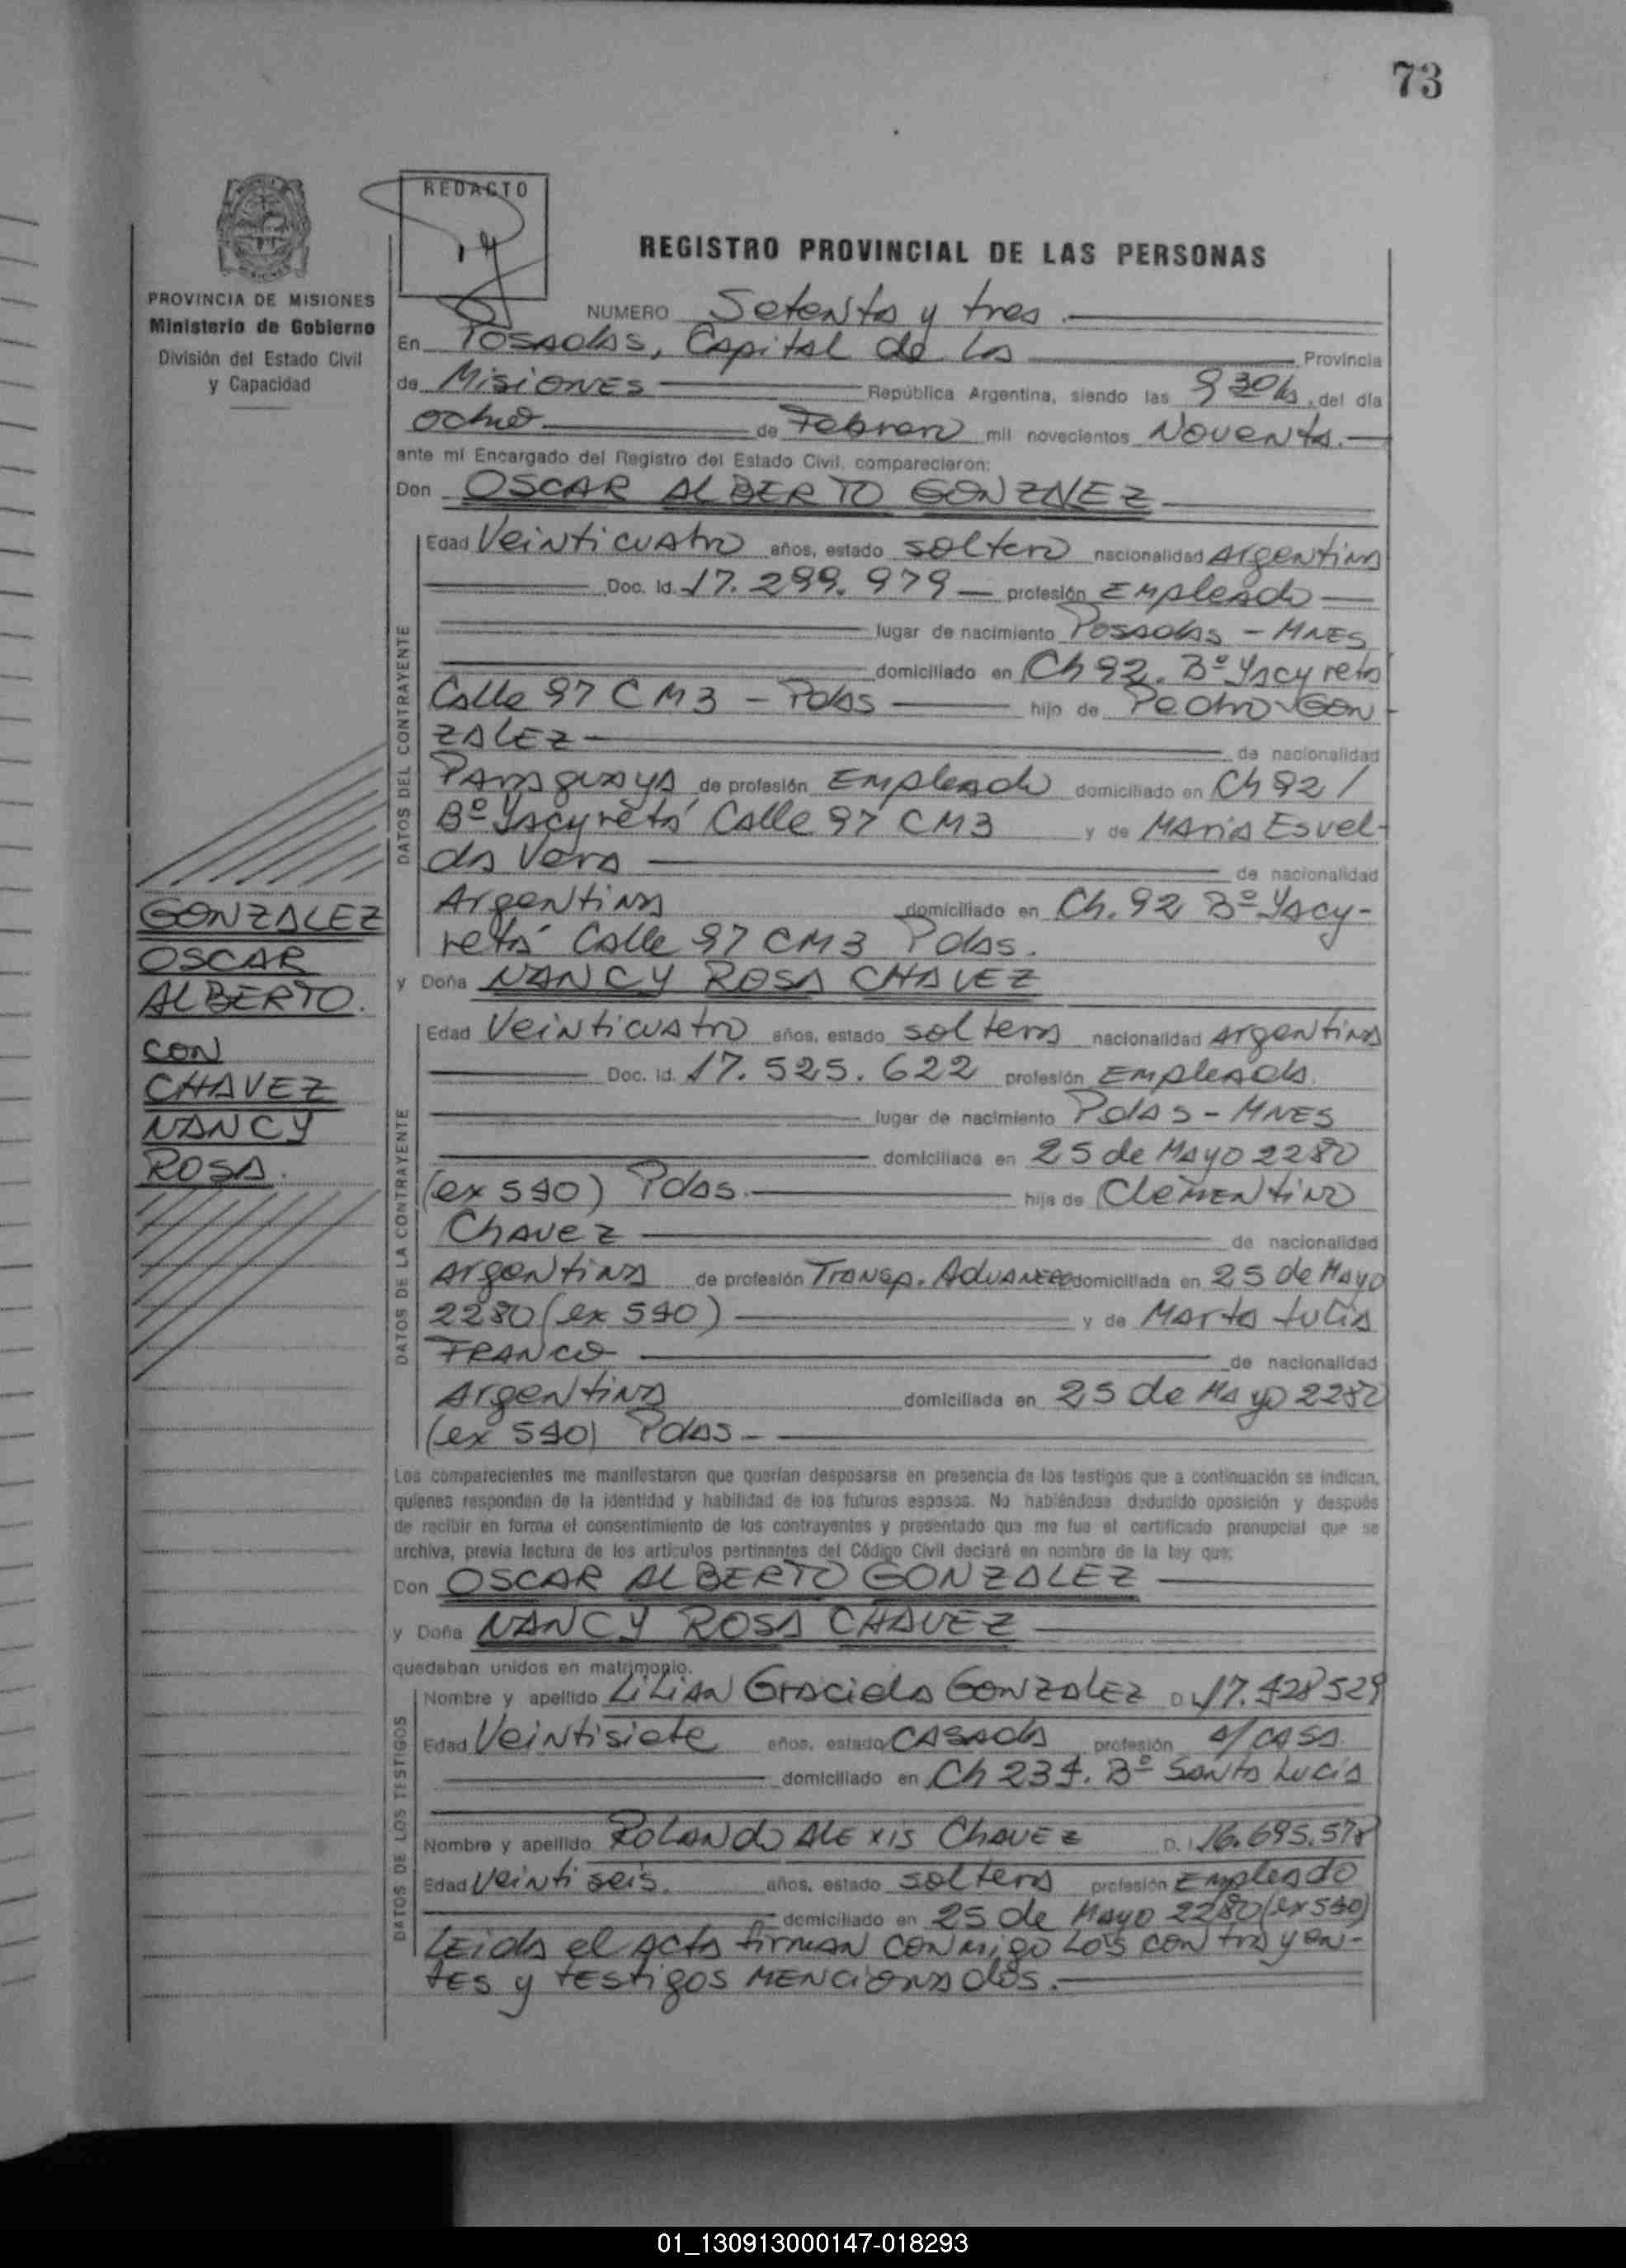 73
REDACTO
REGISTRO PROVINCIAL DE LAS PERSONAS
PROVINCIA DE MISIONES
Ministerio de Gobierno
División del Estado Civil
y Capacidad
NUMERO Setenta y tres
En Posadas, Capital de la Provincia
de Misiones República Argentina, siendo las 9 30 hs, del día
ocho de Febrero mil novecientos Noventa.
ante mí Encargado del Registro del Estado Civil, comparecieron:
Don OSCAR ALBERTO
DATOS DEL CONTRAYENTE
Edad Veinticuatro años, estado soltero nacionalidad Argentina
Doc. Id. 17.299.979 profesión Empleado
lugar de nacimiento Posadas - MNES
domiciliado en Ch 92. Bº Yacyreta
Calle 97 CM3 - Pdas hijo de Pedro GON
ZALEZ de nacionalidad
Paraguaya de profesión Empleado domiciliado en Ch 92 /
Bº Yacyretá Calle 97 CM3 y de Maria Esvel-
da Vera de nacionalidad
Argentina domiciliado en Ch. 92 Bº Yacy-
retá Calle 97 CM3 Pdas.
GONZALEZ
OSCAR
ALBERTO.
CON
CHAVEZ
NANCY
ROSA.
y Doña NANCY ROSA CHAVEZ
DATOS DE LA CONTRAYENTE
Edad Veinticuatro años, estado soltera nacionalidad Argentina
Doc. Id. 17.525.622 profesión Empleada.
lugar de nacimiento Pdas - MNES
domiciliada en 25 de Mayo 2280
(ex 540) Pdas. hija de Clementino
Chavez de nacionalidad
Argentina de profesión Transp. Aduanero domiciliada en 25 de Mayo
2280 (ex 540) y de Marta Julia
FRANCO de nacionalidad
Argentina domiciliada en 25 de Mayo 2280
(ex 540) Pdas -
Los comparecientes me manifestaron que querían desposarse en presencia de los testigos que a continuación se indican,
quienes responden de la identidad y habilidad de los futuros esposos. No habiéndose deducido oposición y después
de recibir en forma el consentimiento de los contrayentes y presentado que me fue el certificado prenupcial que se
archiva, previa lectura de los artículos pertinentes del Código Civil declaré en nombre de la ley que:
Don OSCAR ALBERTO GONZALEZ
y Doña NANCY ROSA CHAVEZ
quedaban unidos en matrimonio.
DATOS DE LOS TESTIGOS
Nombre y apellido Lilian Graciela Gonzalez D.I. 17.428529
Edad Veintisiete años, estado Casada profesión a/ casa.
domiciliado en Ch 234. Bº Santa Lucia
Nombre y apellido Rolando Alexis Chavez D.I. 16.695.578
Edad Veinti seis. años, estado soltero profesión Empleado
domiciliado en 25 de Mayo 2280 (ex 540)
Leida el acta firman conmigo los contrayen-
tes y testigos mencionados.
01_130913000147-018293